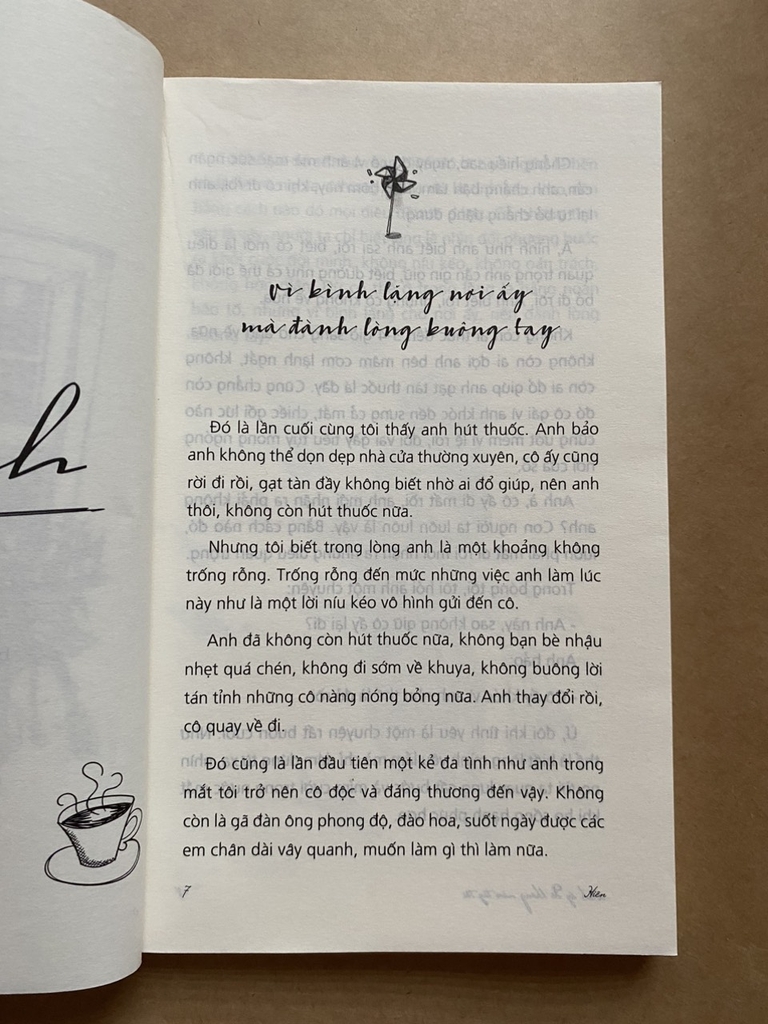 h
vì bình lặng nơi ấy
mà đành lòng buông tay
Đó là lần cuối cùng tôi thấy anh hút thuốc. Anh bảo
anh không thể dọn dẹp nhà cửa thường xuyên, cô ấy cũng
rời đi rồi, gạt tàn đầy không biết nhờ ai đổ giúp, nên anh
thôi, không còn hút thuốc nữa.
Nhưng tôi biết trong lòng anh là một khoảng không
trống rỗng. Trống rỗng đến mức những việc anh làm lúc
này như là một lời níu kéo vô hình gửi đến cô.
Anh đã không còn hút thuốc nữa, không bạn bè nhậu
nhẹt quá chén, không đi sớm về khuya, không buông lời
tán tỉnh những cô nàng nóng bỏng nữa. Anh thay đổi rồi,
cô quay về đi.
Đó cũng là lần đầu tiên một kẻ đa tình như anh trong
mắt tôi trở nên cô độc và đáng thương đến vậy. Không
còn là gã đàn ông phong độ, đào hoa, suốt ngày được các
em chân dài vây quanh, muốn làm gì thì làm nữa.
7
Hiên